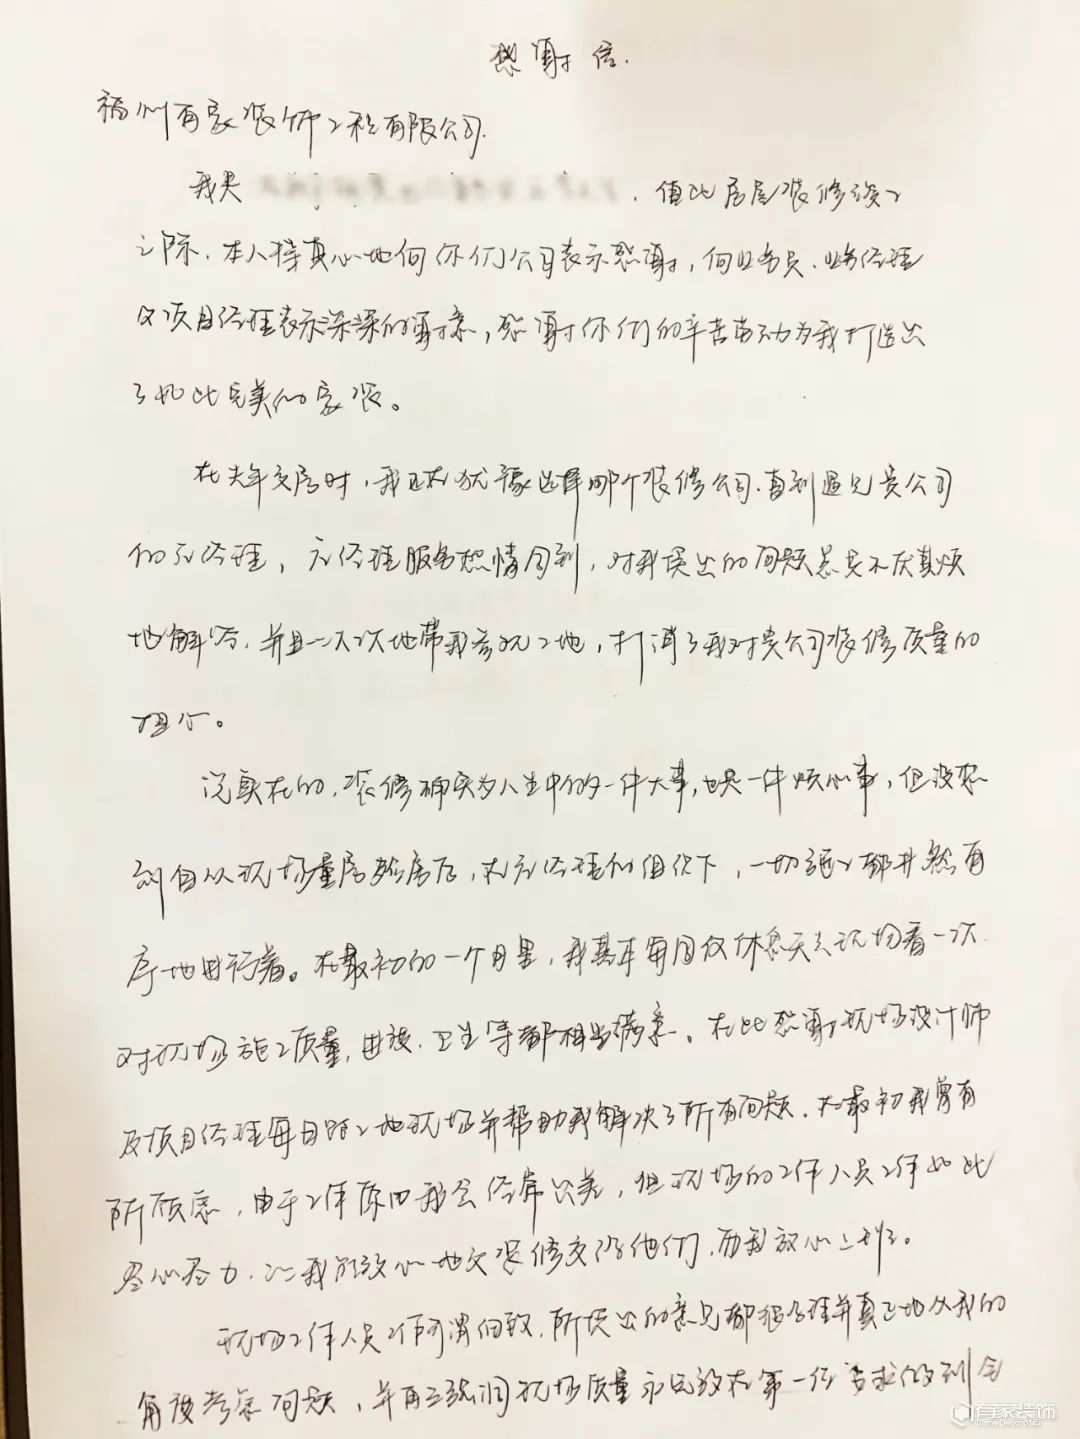 感谢信.
福州有家装饰工程有限公司.
我是 . 值此房屋装修竣工
之际. 本人特真心地向你们公司表示感谢, 向业务员. 业务经理
及项目经理表示深深的谢意, 感谢你们的辛苦劳动为我打造出
了如此完美的家装。
在去年交房时, 我还在犹豫选择哪个装修公司. 直到遇见贵公司
的 经理, 经理服务热情周到, 对我提出的问题总是不厌其烦
地解答. 并且一次次地带我参观工地, 打消了我对贵公司装修质量的
担心。
说实在的. 装修确实为人生中的一件大事, 也是一件烦心事, 但没想
到自从现场量房验房后, 在 经理的组织下, 一切施工都井然有
序地进行着。在最初的一个月里, 我基本每周仅休息天去现场看一次.
对现场施工质量, 进度. 卫生等都相当满意。在此感谢现场设计师
及项目经理每日跑工地现场并帮助我解决了所有问题. 在最初我曾有
所顾虑, 由于工作原因我会经常出差, 但现场的工作人员工作如此
尽心尽力. 让我能放心地把装修交给他们, 而我放心上班。
现场工作人员工作 细致. 所提出的意见都很合理并真正地从我的
角度考虑问题, 并再三强调现场质量永远放在第一位 求做到令
有家装饰
HomeDecorMall